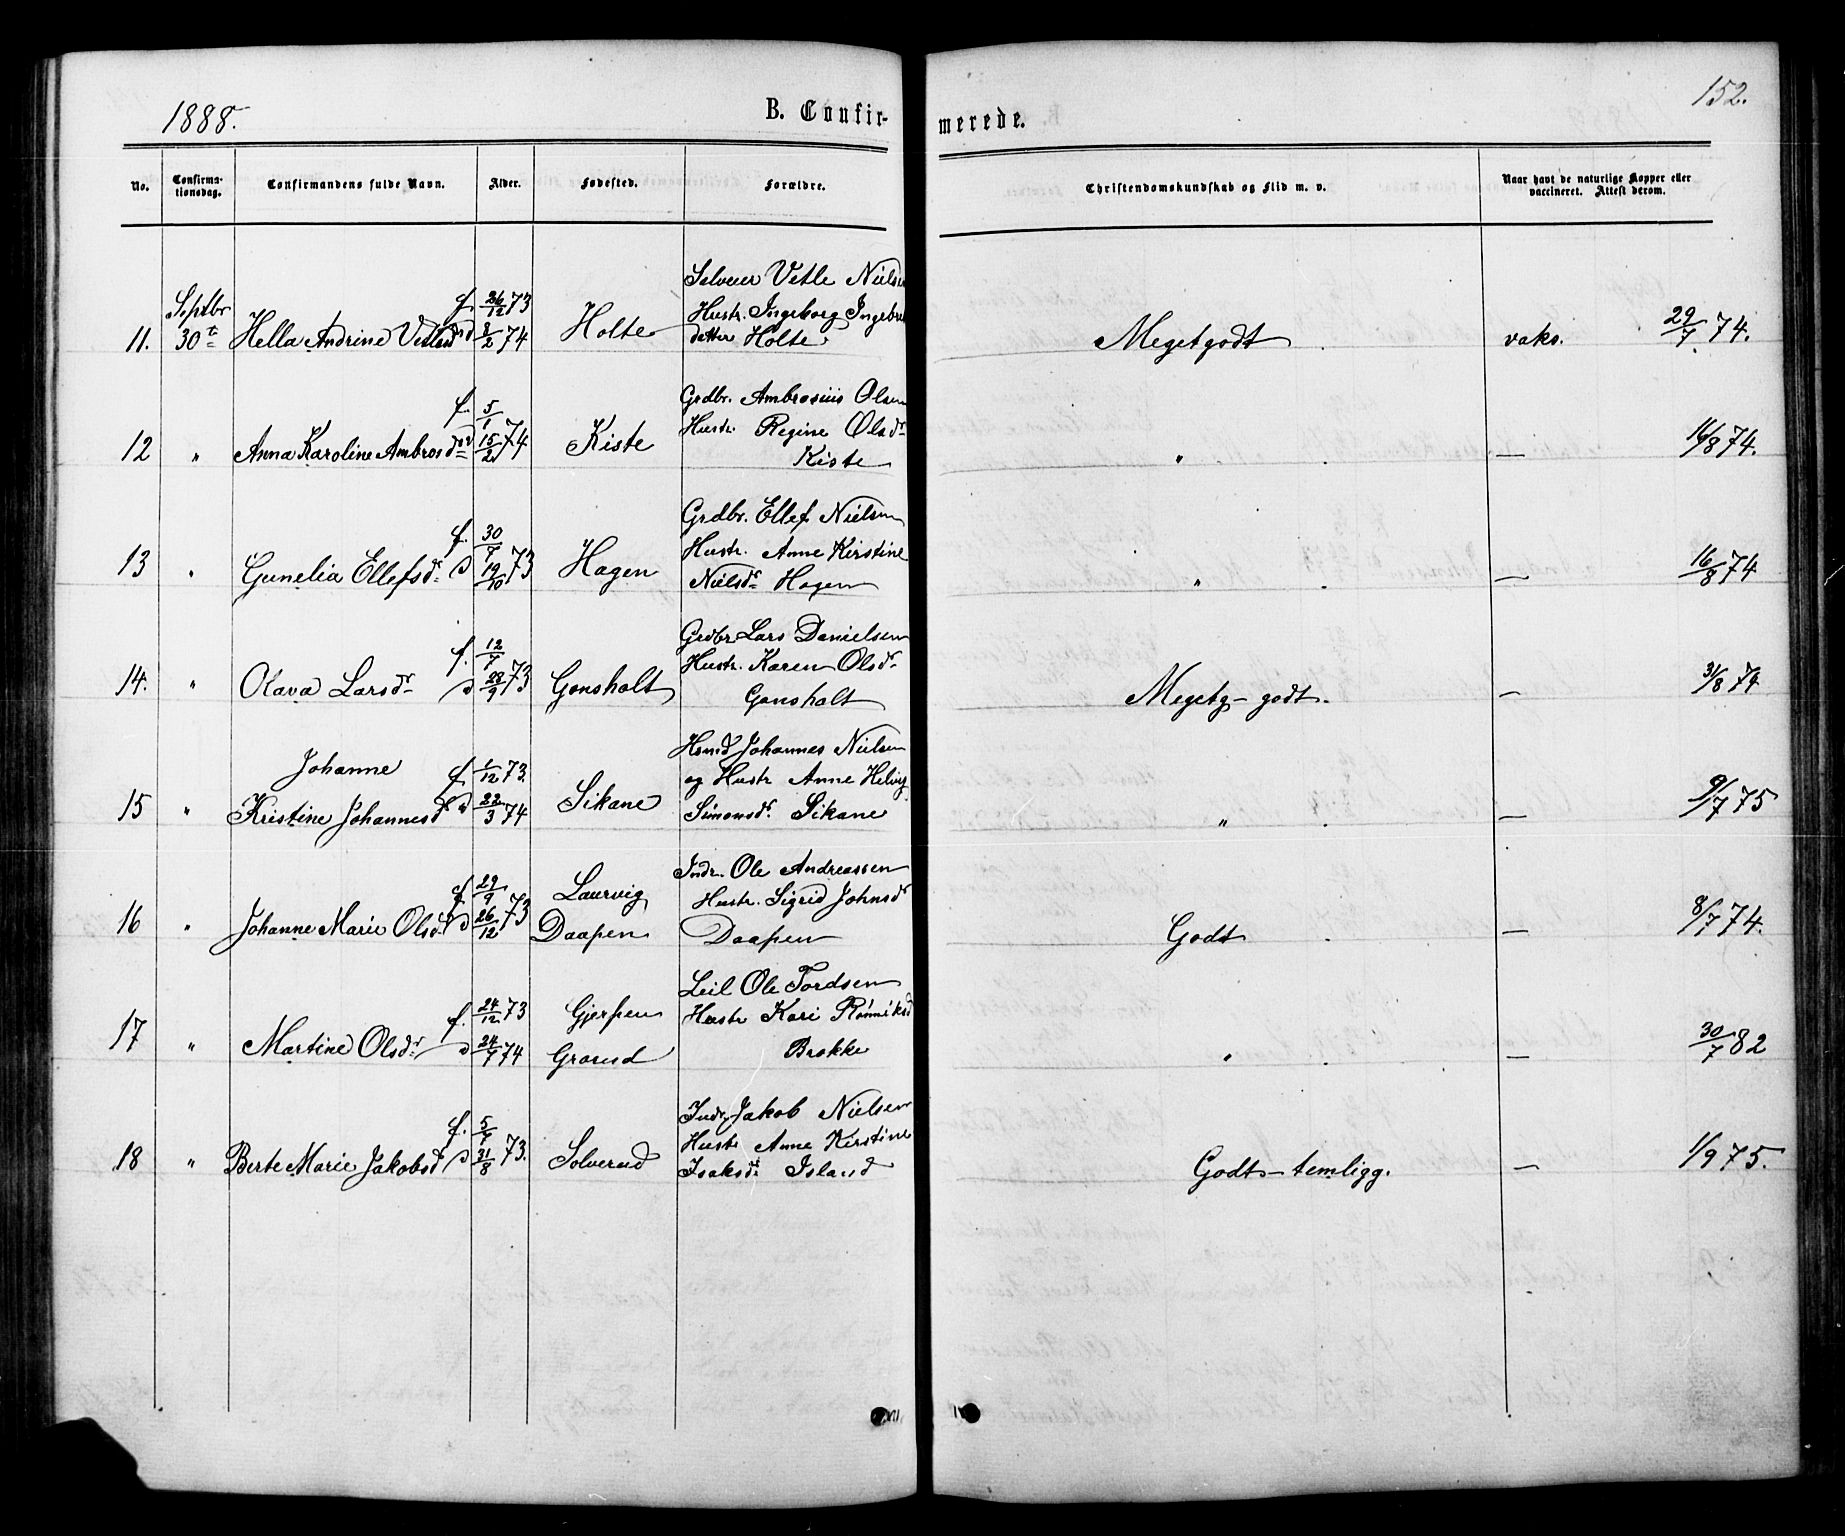 1888.
B. Confir-
merede.
152.
No.
Confirmationsdag.
Confirmandens fulde Navn.
Alder.
Fødested.
Forældre.
Christendomskundskab og Flid m. v.
Naar havt de naturlige Kopper eller vaccineret. Attest derom.
11. Septbr 30te Hella Andrine Vetlesd f. 26/12 73 d 8/2 74 Holte
Selveier Vetle Nielsen
Hustr. Ingeborg
datter Holte
Megetgodt vaks. 29/7 74.
12 " Anna Karoline Ambrosdr f. 5/1 d 15/2 74 Kiste
Grdbr. Ambrosius Olsen
Hustr. Regine Olsdr
Kiste
" — 16/8 74.
13 " Gunelia Ellefsdr f. 30/7 d 19/10 73 Hagen
Grdbr. Ellef Nielsen
Hustr. Anne Kirstine
Nielsdr Hagen
" — 16/8 74
14. " Olava Larsdr f. 12/7 d 28/9 73 Gonsholt
Grdbr Lars Danielsen
Hustr. Karen Olsdr
Gonsholt
Megetg - godt. — 31/8 74
15 " Johanne
Kristine Johannesd f 1/12 73. d 22/3 74 Sikane
Hsmd Johannes Nielsen
og Hustr Anne Helvig
Simonsdr Sikane
" — 9/7 75
16 " Johanne Marie Olsdr f 29/9 d 26/12 73 Laurvig
Daapen
Indr. Ole Andreassen
Hustr. Sigrid Johnsdr
Daapen
Godt — 8/7 74.
17 " Martine Olsdr f. 24/12 73 d 24/7 74 Gjerpen
Grorud
Leil Ole Tordsen
Hustr Kari
Brokke
" — 30/7 82
18 " Berte Marie Jakobsd f. 5/7 d 31/8 73. Solverud
Indr. Jakob Nielsen
Hustr Anne Kirstine
Isaksdr Island
Godt - temligg. — 1/9 75.